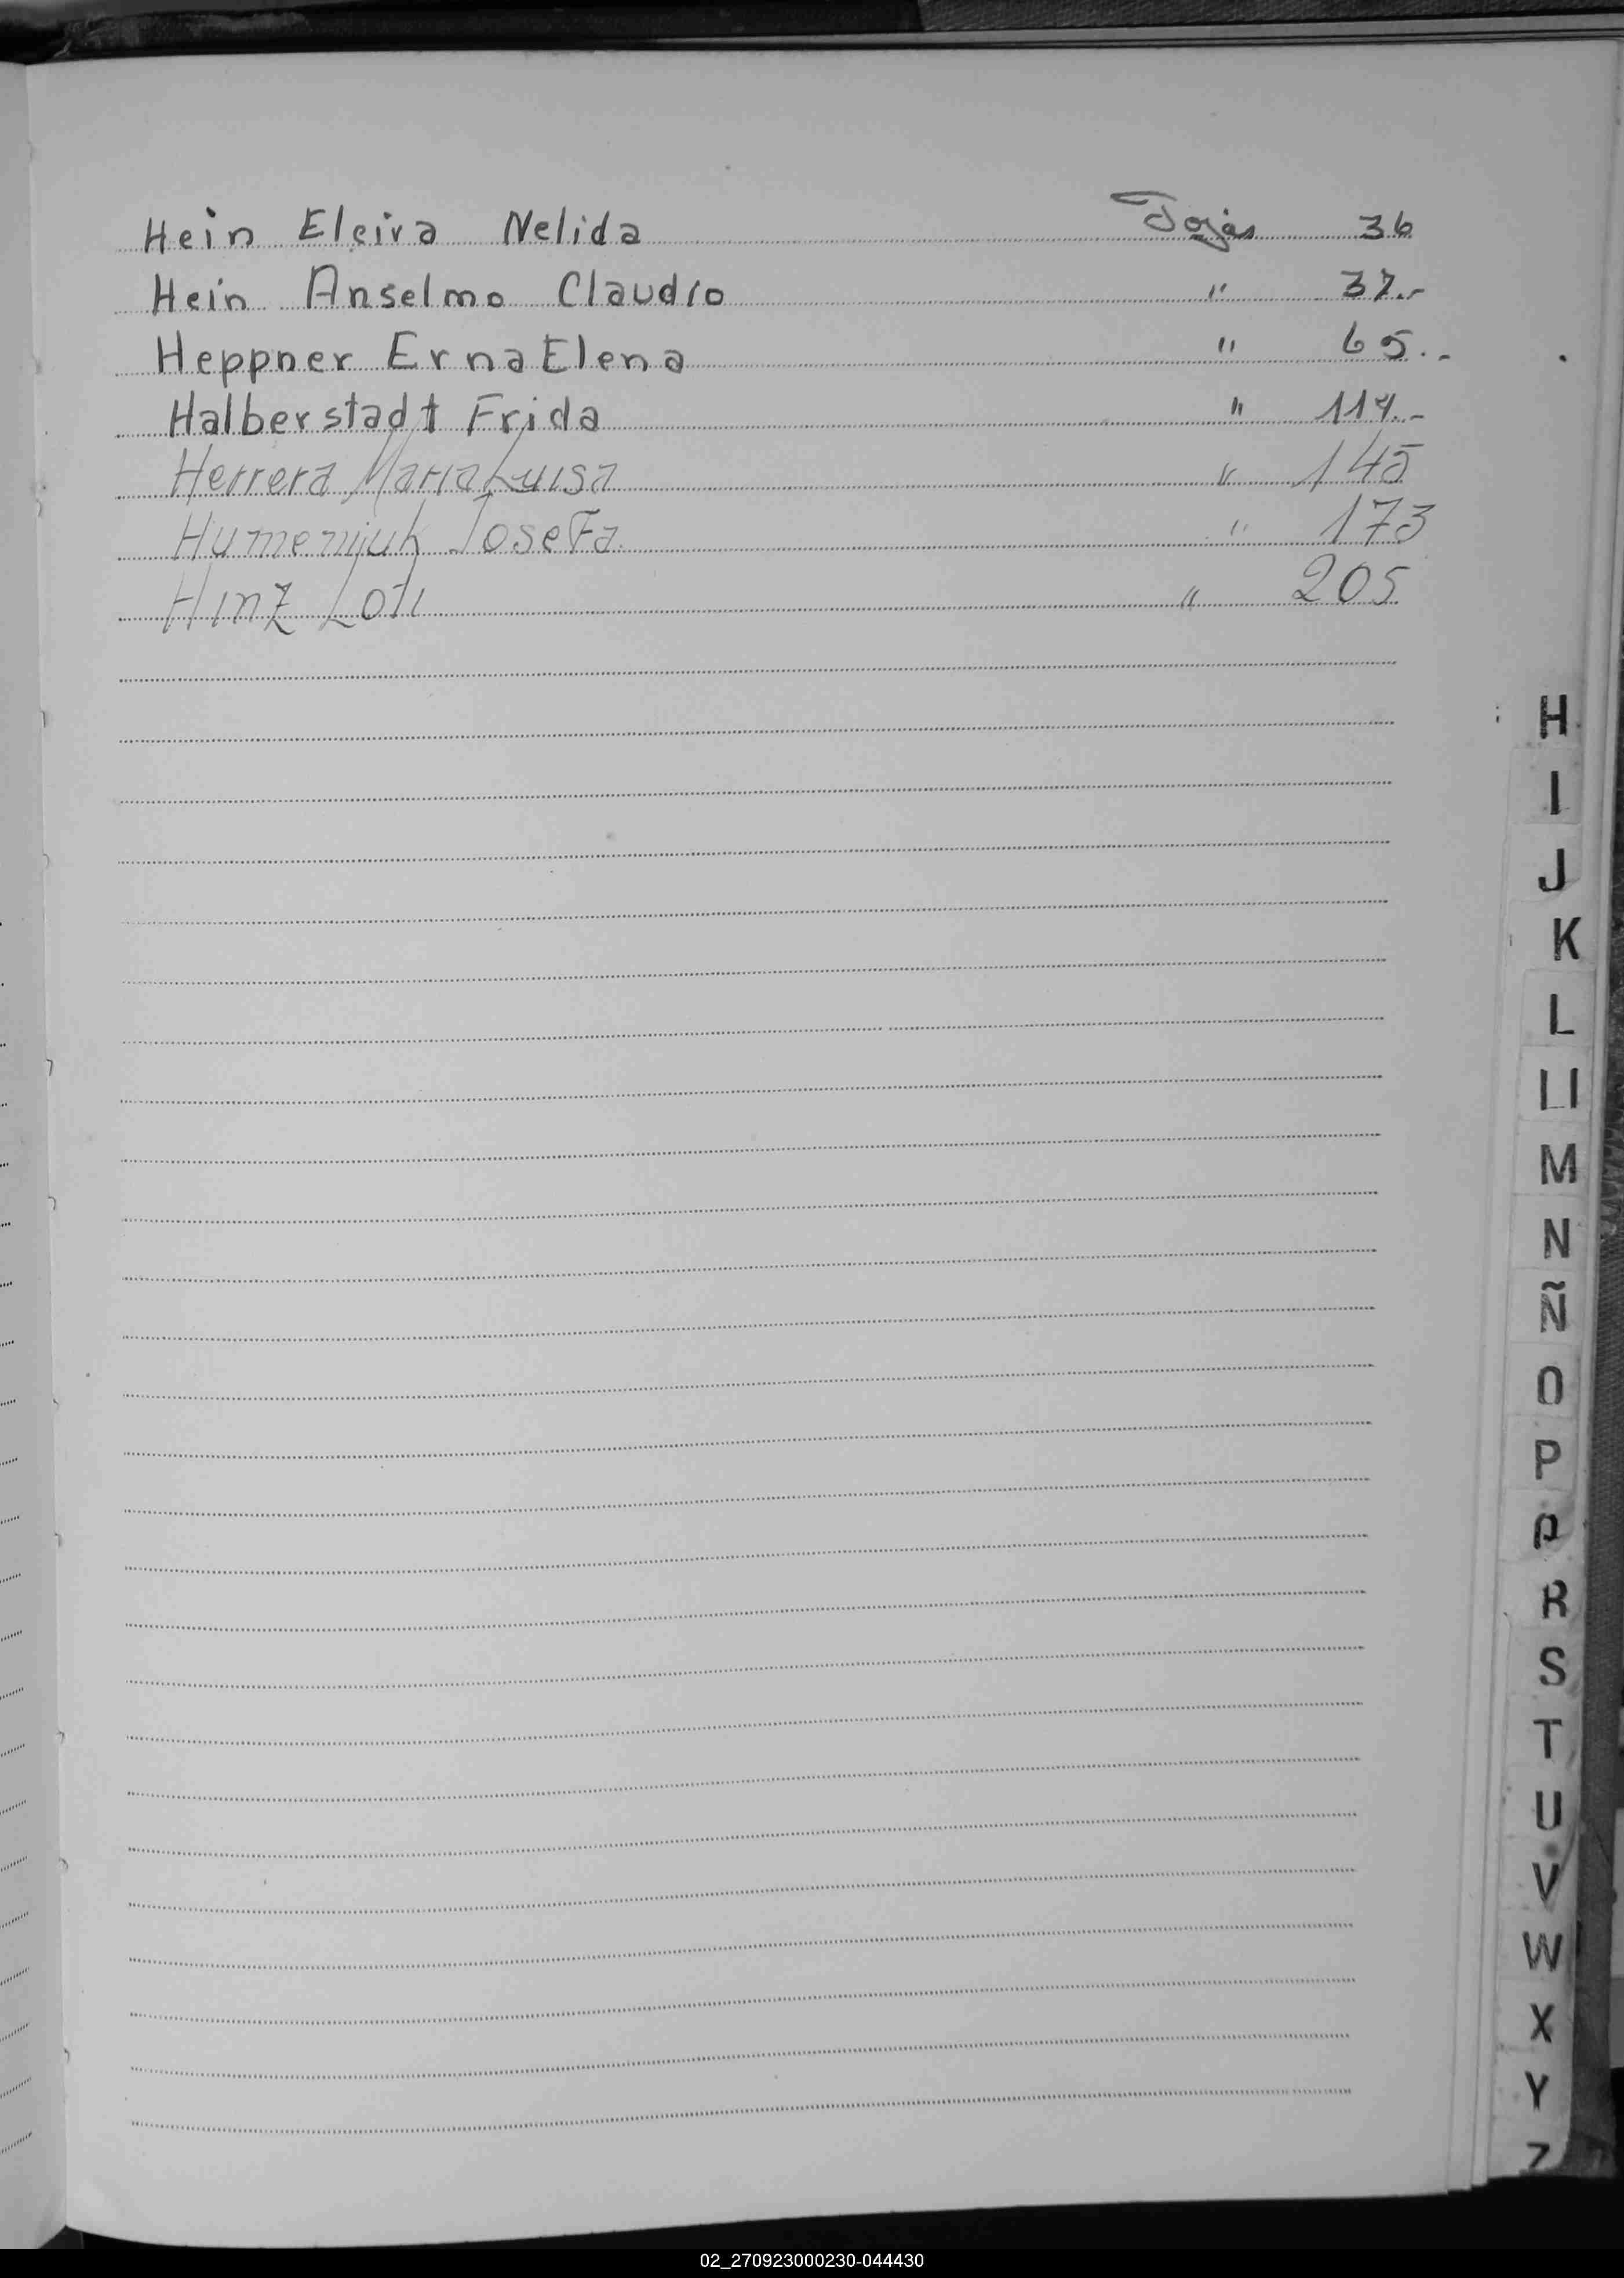 Hein Elcira Nelida Fojas 36
Hein Anselmo Claudio " 37.-
Heppner Erna Elena " 65.-
Halberstadt Frida " 114.-
Herrera Maria Luisa " 145
Humeniuk Josefa " 173
Hinz Loti " 205
H
I
J
K
L
Ll
M
N
Ñ
O
P
Q
R
S
T
U
V
W
X
Y
Z
02_270923000230-044430